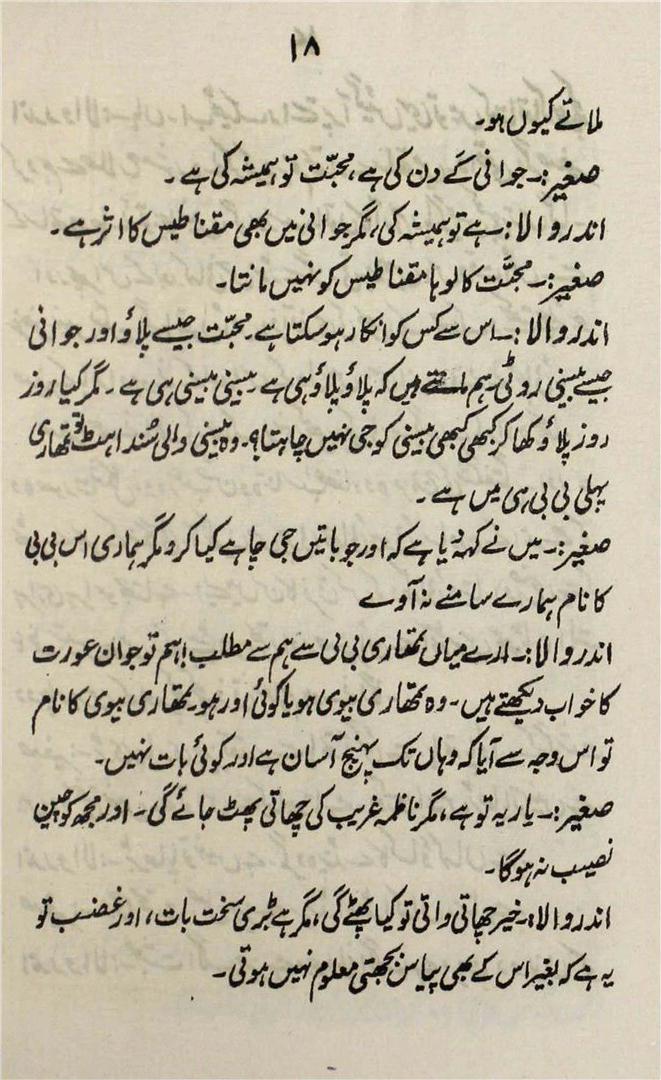 ۱۸
ملاتے کیوں ہو۔
صغیر:۔ جوانی کَے دن کی ہے، محبّت تو ہمیشہ کی ہے ۔
اندر والا:۔ ہے تو ہمیشہ کی، مگر جوانی میں بھی مقناطیس کا اثر ہے۔
صغیر:۔ محبَّت کا لوہا مقناطیس کو نہیں مانتا۔
اندر والا:۔ اس سے کس کو انکار ہو سکتا ہے۔ محبّت جیسے پلاؤ اور جوانی
جیسے بیسنی روٹی۔ ہم مانتے ہیں کہ پلاؤ پلاؤ ہی ہے۔ بیسنی بیسنی ہی ہے ۔ مگر کیا روز
روز پلاؤ کھا کر کبھی کبھی بیسنی کو جی نہیں چاہتا؟۔ وہ بیسنی والی سُنداہٹ تو تمھاری
پہلی بی بی ہی میں ہے ۔
صغیر:۔ میں نے کہہ دیا ہے کہ اور جو باتیں جی چاہے کیا کرو مگر ہماری اس بی بی
کا نام ہمارے سامنے نہ آوے
اندر والا:۔ ارے میاں تمھاری بی بی سے ہم سے مطلب! ہم تو جوان عورت
کا خواب دیکھتے ہیں۔ وہ تمھاری بیوی ہو یا کوئی اور ہو۔ تمھاری بیوی کا نام
تو اس وجہ سے آیا کہ وہاں تک پہنچ آسان ہے اور کوئی بات نہیں۔
صغیر:۔ یار یہ تو ہے، مگر ناظمہ غریب کی چھاتی پھٹ جائے گی۔ اور مجھ کو چین
نصیب نہ ہوگا۔
اندر والا:۔ خیر چھاتی واتی تو کیا پھٹے گی، مگر ہے بڑی سخت بات، اور غضب تو
یہ ہے کہ بغیر اس کے بھی پیاس بجھتی معلوم نہیں ہوتی۔